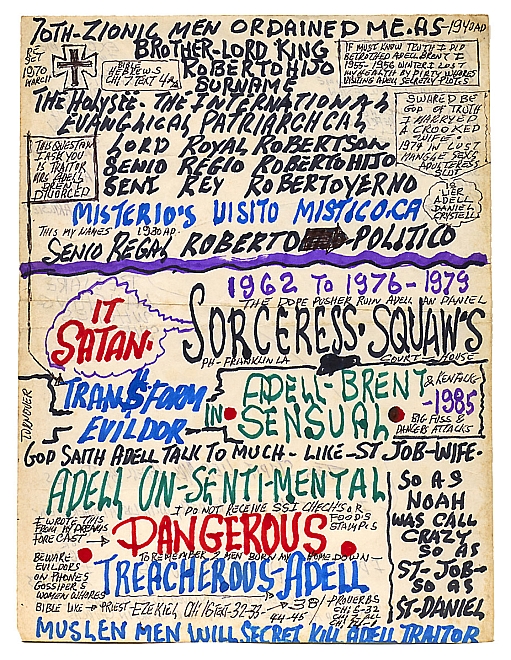 70TH-ZIONIC MEN ORDAINED ME.AS-1940AD
BROTHER-LORD KING
ROBERTOHIJO
SURNAME
RE
SET
1970
MARCH
BIBLE
HEBREWS
CH. 7 TEXT 4
IF MUST KNOW TRUTH I DID
BETROTHED ADELL BRENT I
1955-1956 WINTER I LOST
MY HEALTH BY DIRTY WHORES
VISITING ADELL SECRETLY PLOTS
THE HOLYSEE. THE INTERNATIONAL
EVANGLICAL PATRIARCHCAL
THIS QUESTAN
I ASK YOU
IS TRAITOR
MRS ADELL
BRENT
DIVORCED
LORD ROYAL ROBERTSON
SENIO REGIO ROBERTOHIJO
SENT REY ROBERTOYERNO
SWORED BE
GOD OF TRUTH
I MARRYED
A CROOKED
WHIFE
1979 IN LUST
MANGLE SEXS
ADULTERESS
SLUT
IS
LIER
ADELL
DANIEL
CRYSTELL
MISTERIO'S VISITO MISTICO.CA
THIS MY NAMES 1980 AP.
SENIO REGAL ROBERTO POLITICO
1962 TO 1976-1979
THE DOPE PUSHER RUIN ADELL AN DANIEL
IT
SATAN.
SORCERESS. SQUAW'S
PH-FRANKLIN LA COURT-HOUSE
TURNOVER
TRAN$FORM
EVILDOR
IN
ADELL-BRENT
SENSUAL
& KEN FOLKS
-1985
BIG FUSS &
DANGERS ATTACKS
GOD SAITH ADELL TALK TO MUCH-LIKE-ST JOB-WIFE.
ADELL UN-SENTI-MENTAL
I DO NOT RECEIVE SSI CHECHS OR
FOODS
STAMPIS
I WROTE THIS
FROM MY DREAMS
FORE CAST
DANGEROUS
TO REMEMBER 2 MEN BURN MY HOME DOWN
BEWARE
EVILDORS
ON PHONES
GOSSIPERS
WOMEN WHORES
TREACHEROUS ADELL
BIBLE LIKE PRIEST-EZEKIEL CH.16 TEXT-32-33-
38/
44-45
PROVERBS
CH. 5-32
SO AS
NOAH
WAS CALL
CRAZY
SO AS
ST-JOB-
SO AS
ST-DANIEL
MUSLEN MEN WILL SECRET KILL ADELL TRAITOR